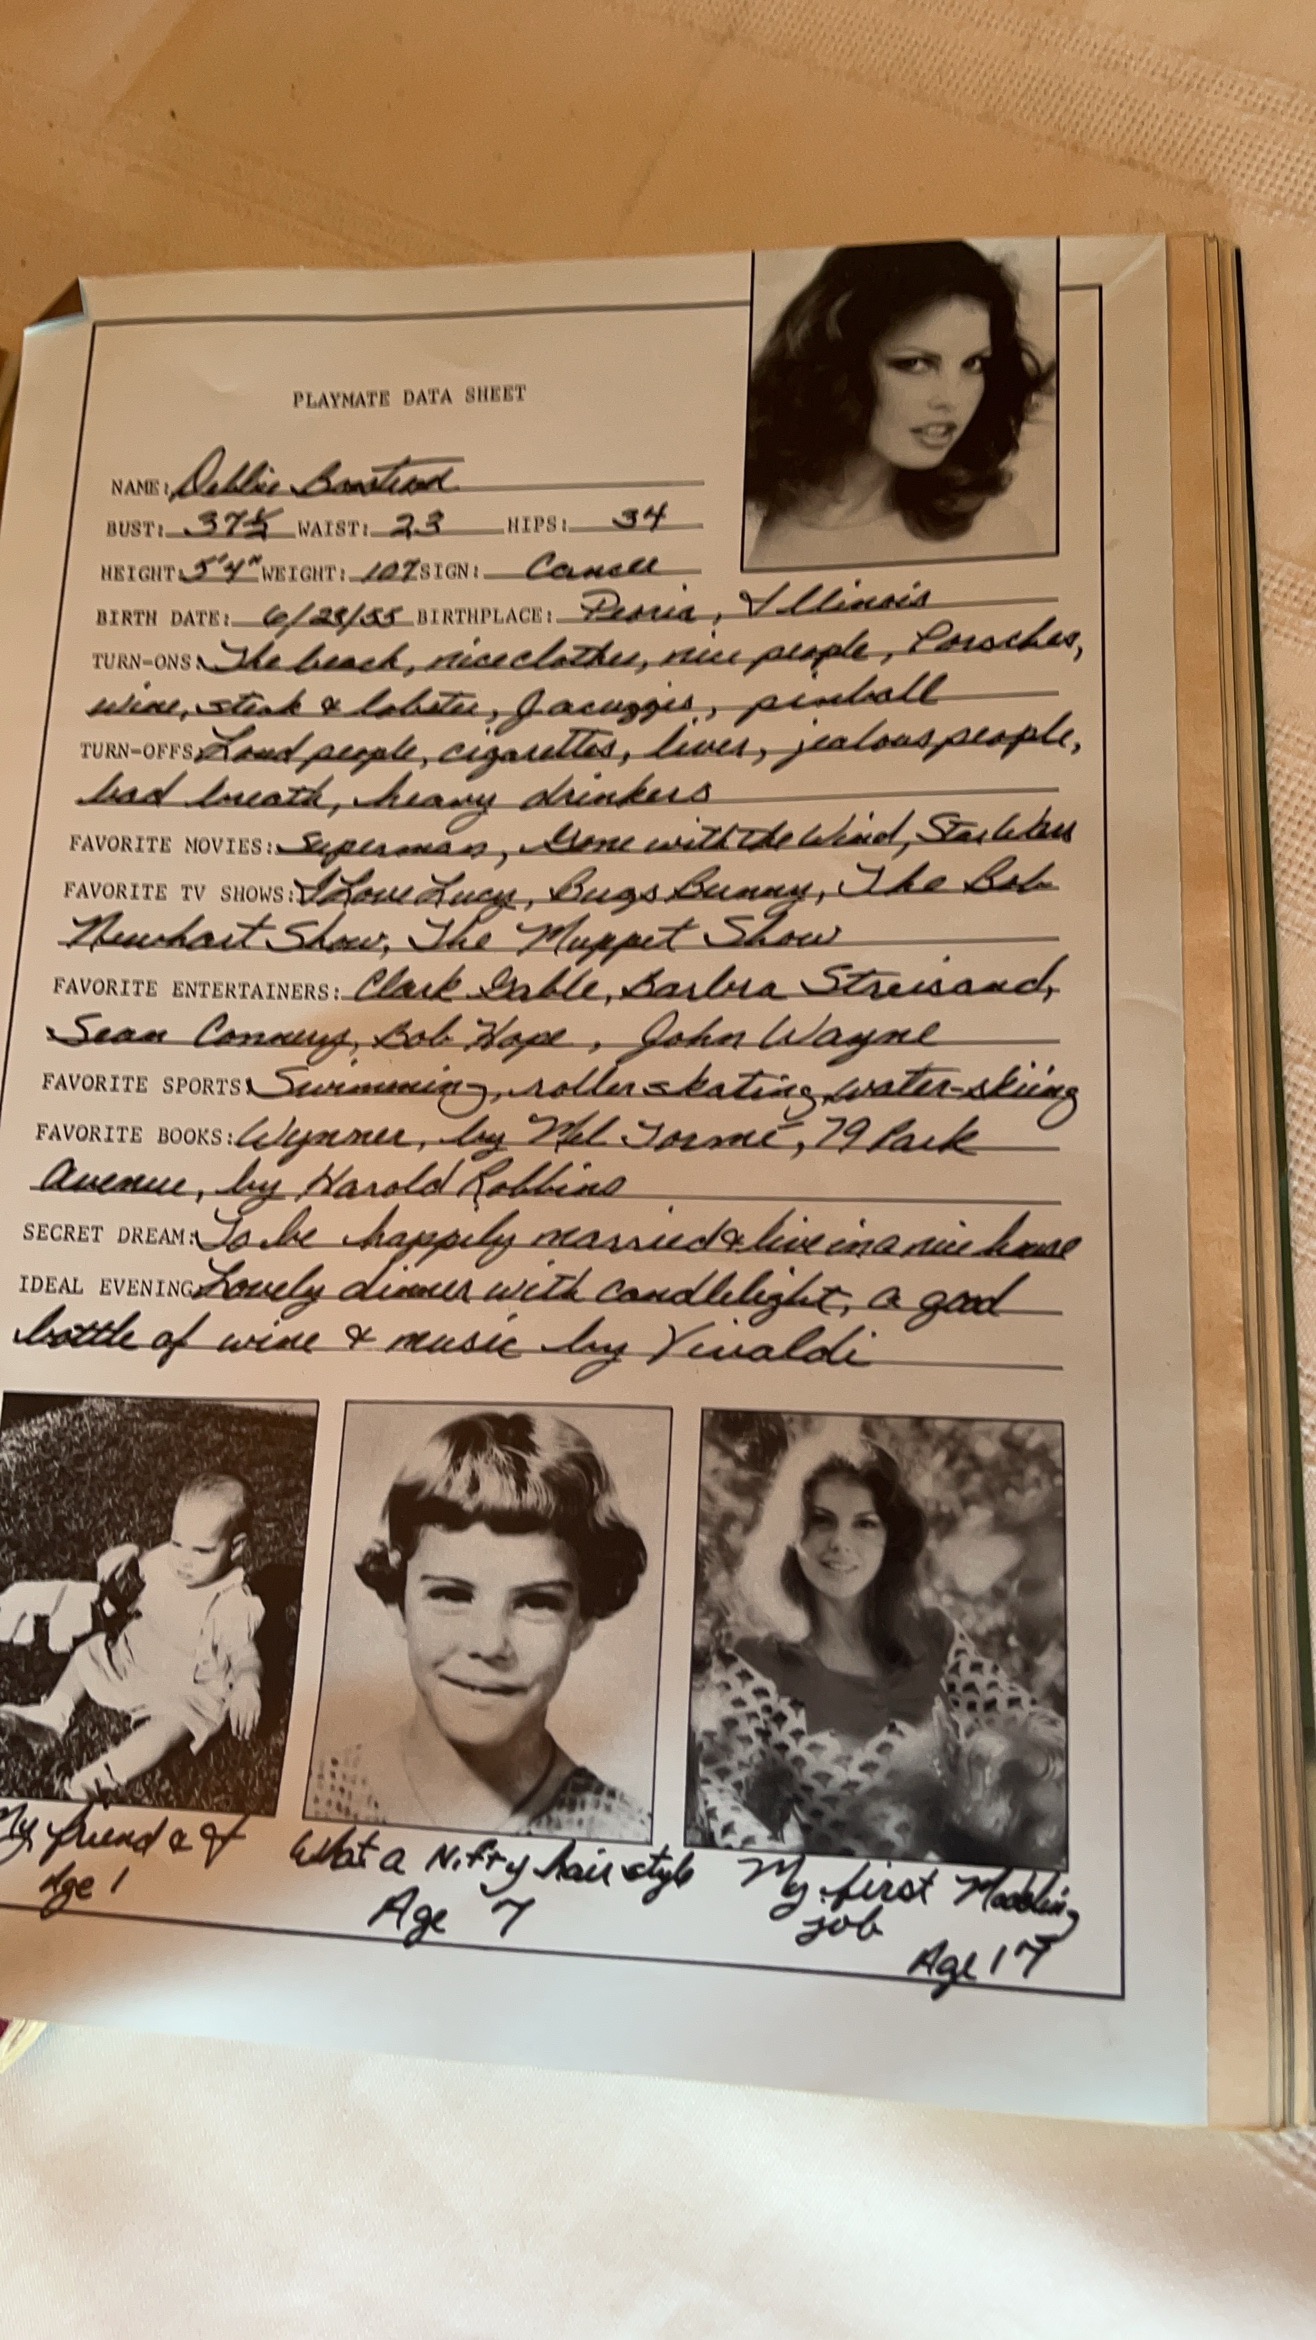 PLAYMATE DATA SHEET
NAME: Debbie Boostrom
BUST: 37½ WAIST: 23 HIPS: 34
HEIGHT: 5'4" WEIGHT: 107 SIGN: Cancer
BIRTH DATE: 6/28/55 BIRTHPLACE: Peoria, Illinois
TURN-ONS: The beach, nice clothes, nice people, Porsches,
wine, steak & lobster, Jacuzzis, pinball
TURN-OFFS: Loud people, cigarettes, liver, jealous people,
bad breath, heavy drinkers
FAVORITE MOVIES: Superman, Gone with the Wind, Star Wars
FAVORITE TV SHOWS: I Love Lucy, Bugs Bunny, The Bob
Newhart Show, The Muppet Show
FAVORITE ENTERTAINERS: Clark Gable, Barbra Streisand,
Sean Connery, Bob Hope, John Wayne
FAVORITE SPORTS: Swimming, roller skating, water-skiing
FAVORITE BOOKS: Wynner, by Mel Tormé, 79 Park
Avenue, by Harold Robbins
SECRET DREAM: To be happily married & live in a nice house
IDEAL EVENING: Lovely dinner with candlelight, a good
bottle of wine & music by Vivaldi
My friend & I
Age 1
What a Nifty hair style
Age 7
My first Modeling
job
Age 17